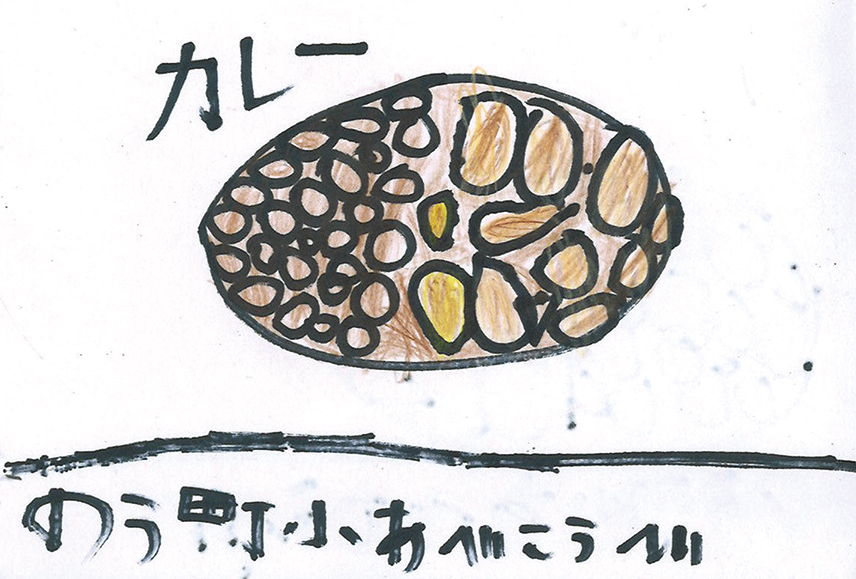 カレー
のう町小あべこうべ